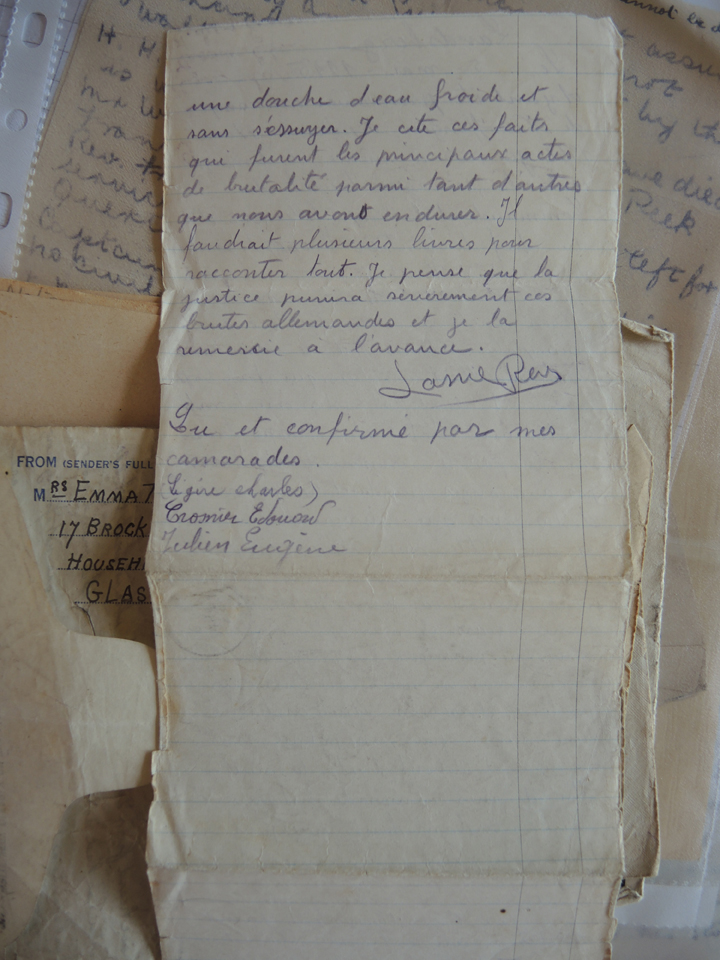 une douche d'eau froide et
sans s'éssuyer. Je cite ces faits
qui furent les principaux actes
de brutalité parmi tant d'autres
que nous avont endurer. Il
faudrait plusieurs livres pour
racconter tout. Je pense que la
justice punira sévèrement ces
brutes allemandes et je la
remercie à l'avance.
Lu et confirmé par mes
camarades.
charles)
Crosnier Edouard
Julien Eugène
FROM (SENDER'S FULL
MRS EMMA
17 BROCK
HOUSEH
GLAS
H. H
Rev.
Peek
left for
cannot be d
by th